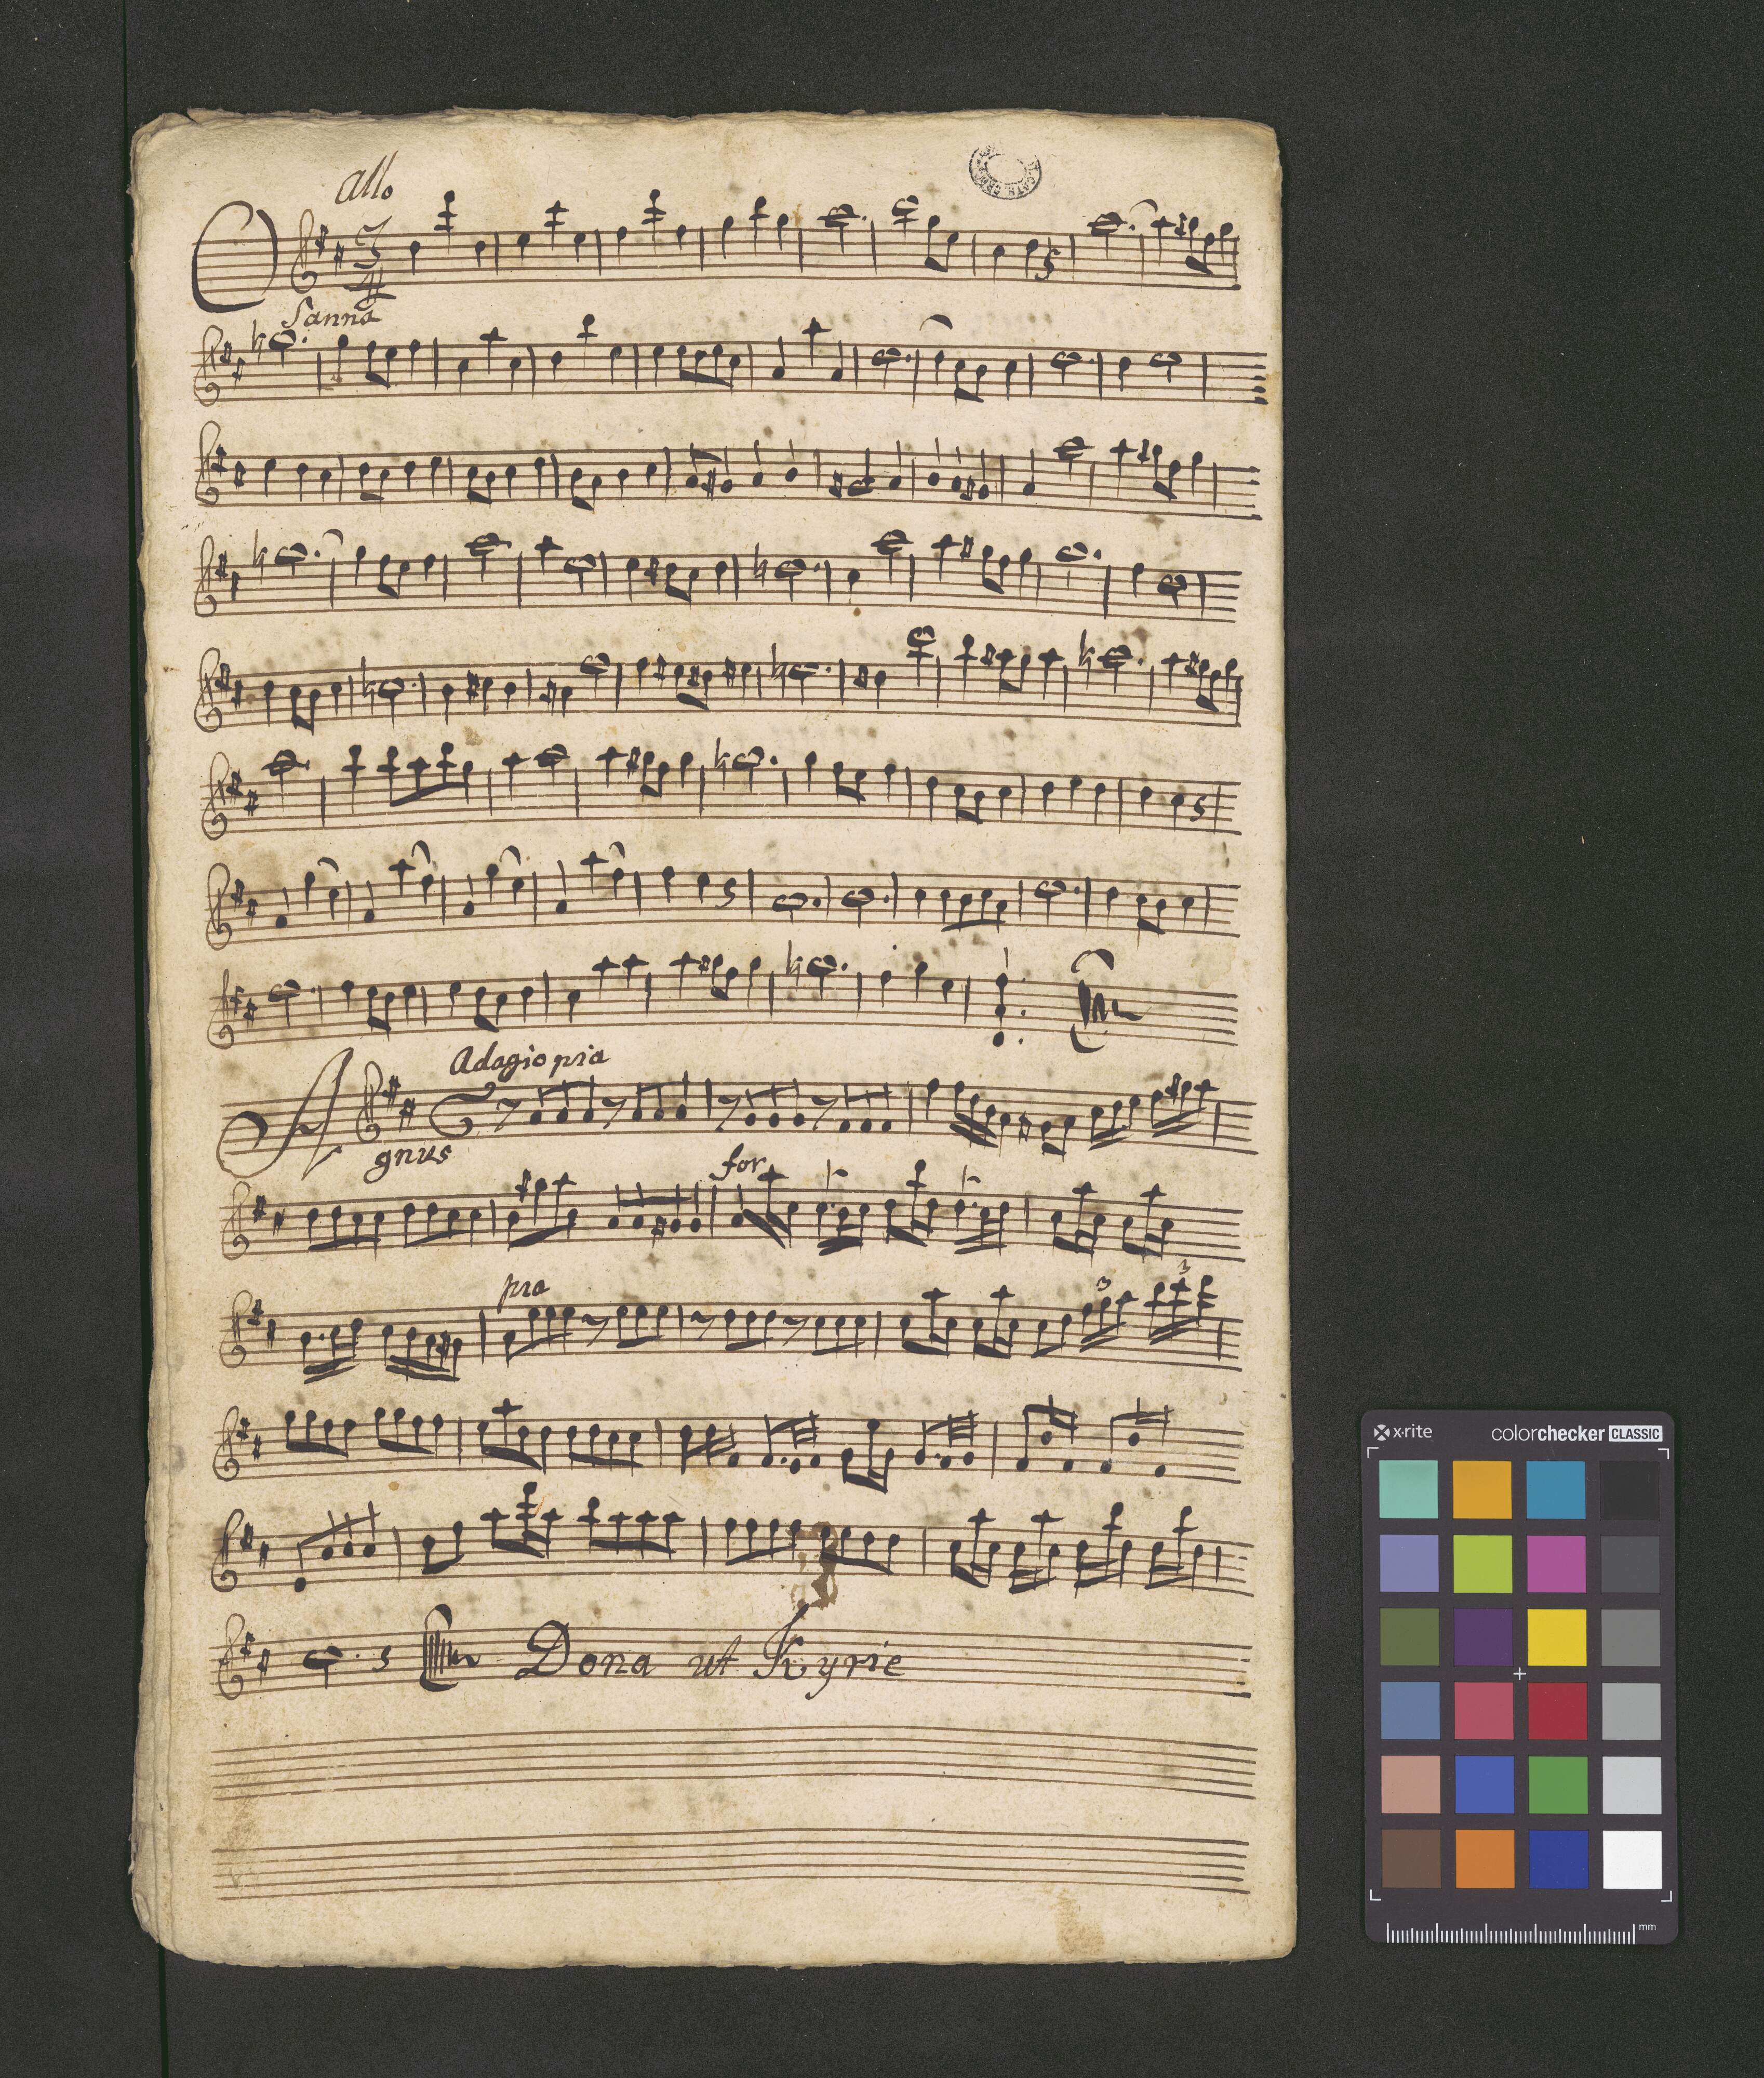 allo
O
3
4
Sanna
Adagio pia
A
gnus
for
pia
3 3
Dona ut Kyrie
x-rite colorchecker CLASSIC
mm